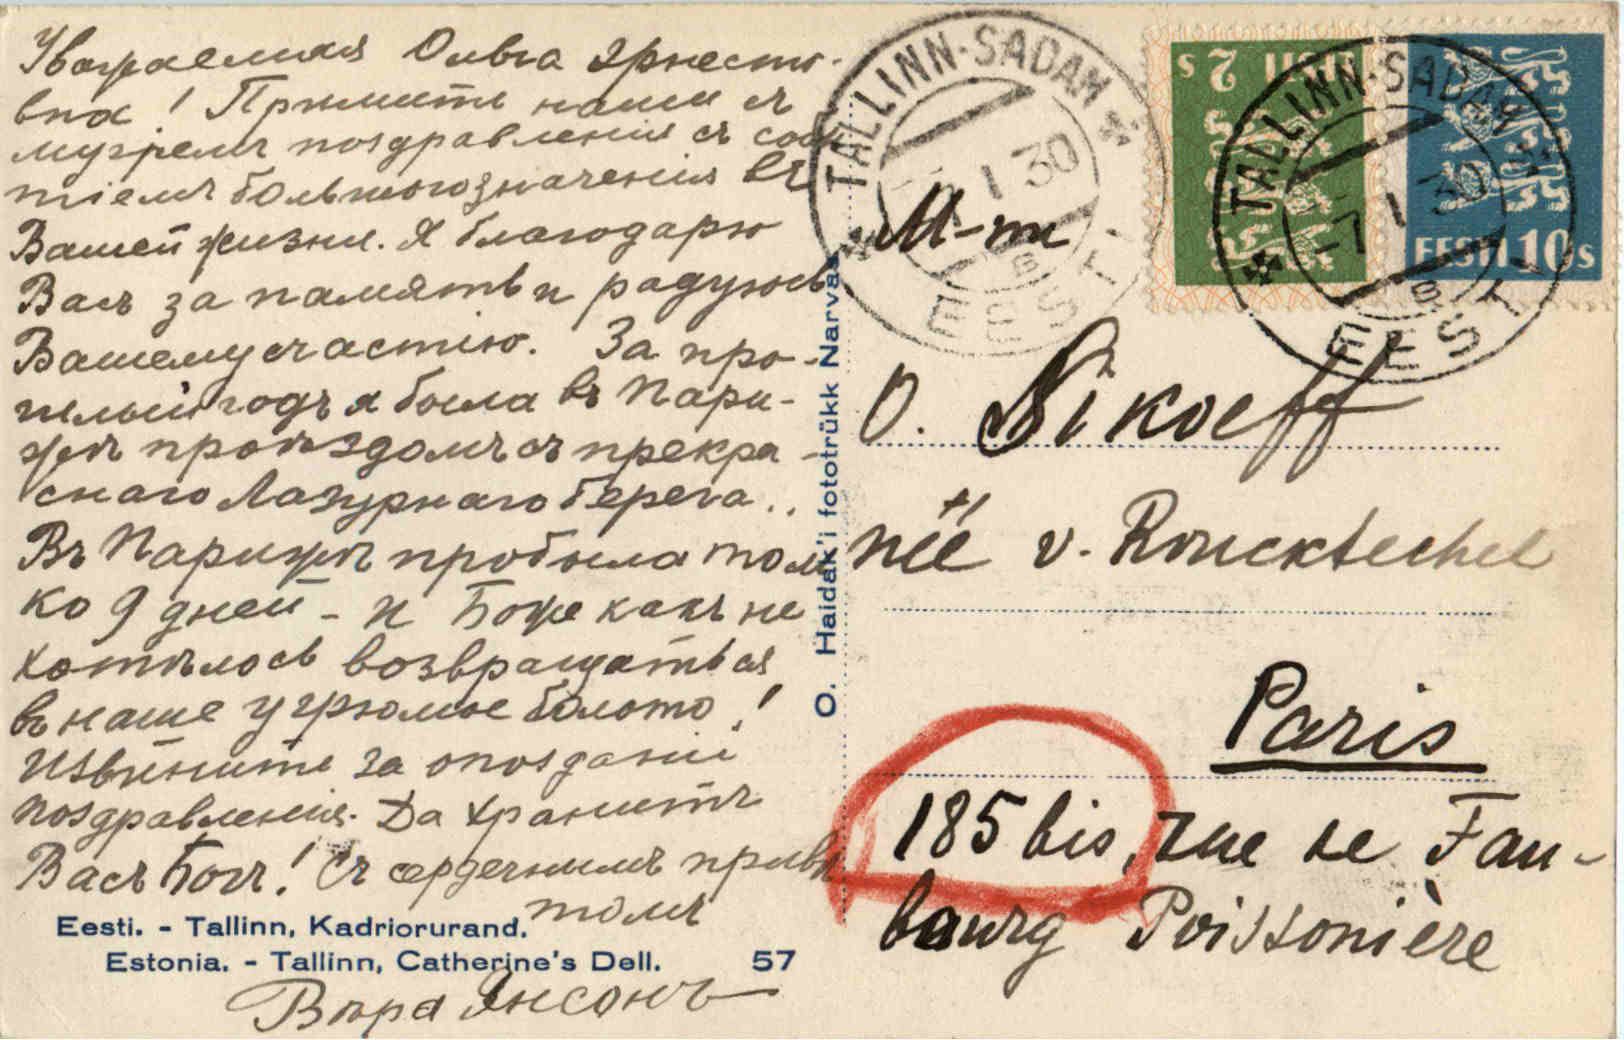 Уважаемая Ольга Эрнесто-
вна! Примите наши съ
мужемъ поздравленія съ собы
тіемъ большого значенія въ
Вашей жизни. Я благодарю
Васъ за память и радуюсь
Вашему счастію. За про-
шлый годъ я была въ Пари-
жѣ проѣздомъ съ прекра-
снаго Лазурнаго берега..
Въ Парижѣ пробыла толь
ко 9 дней - и Боже какъ не
хотѣлось возвращаться
въ наше угрюмое болото!
Извините за опозданіи
поздравленія. Да хранитъ
Васъ Богъ! Съ сердечнымъ привѣ
томъ
Вѣра Янсонъ
Eesti. - Tallinn, Kadriorurand.
Estonia. - Tallinn, Catherine's Dell. 57
O. Haidak'i fototrükk Narvas
TALLINN-SADAM
I 30
B
EESTI
EESTI 2 s
EESTI 10 s
TALLINN-SADAM
-7 I 30
B
EESTI
M-me
O. Sikoeff
née v. Roucktechel
Paris
185 bis, rue de Fau-
bourg Poissonière